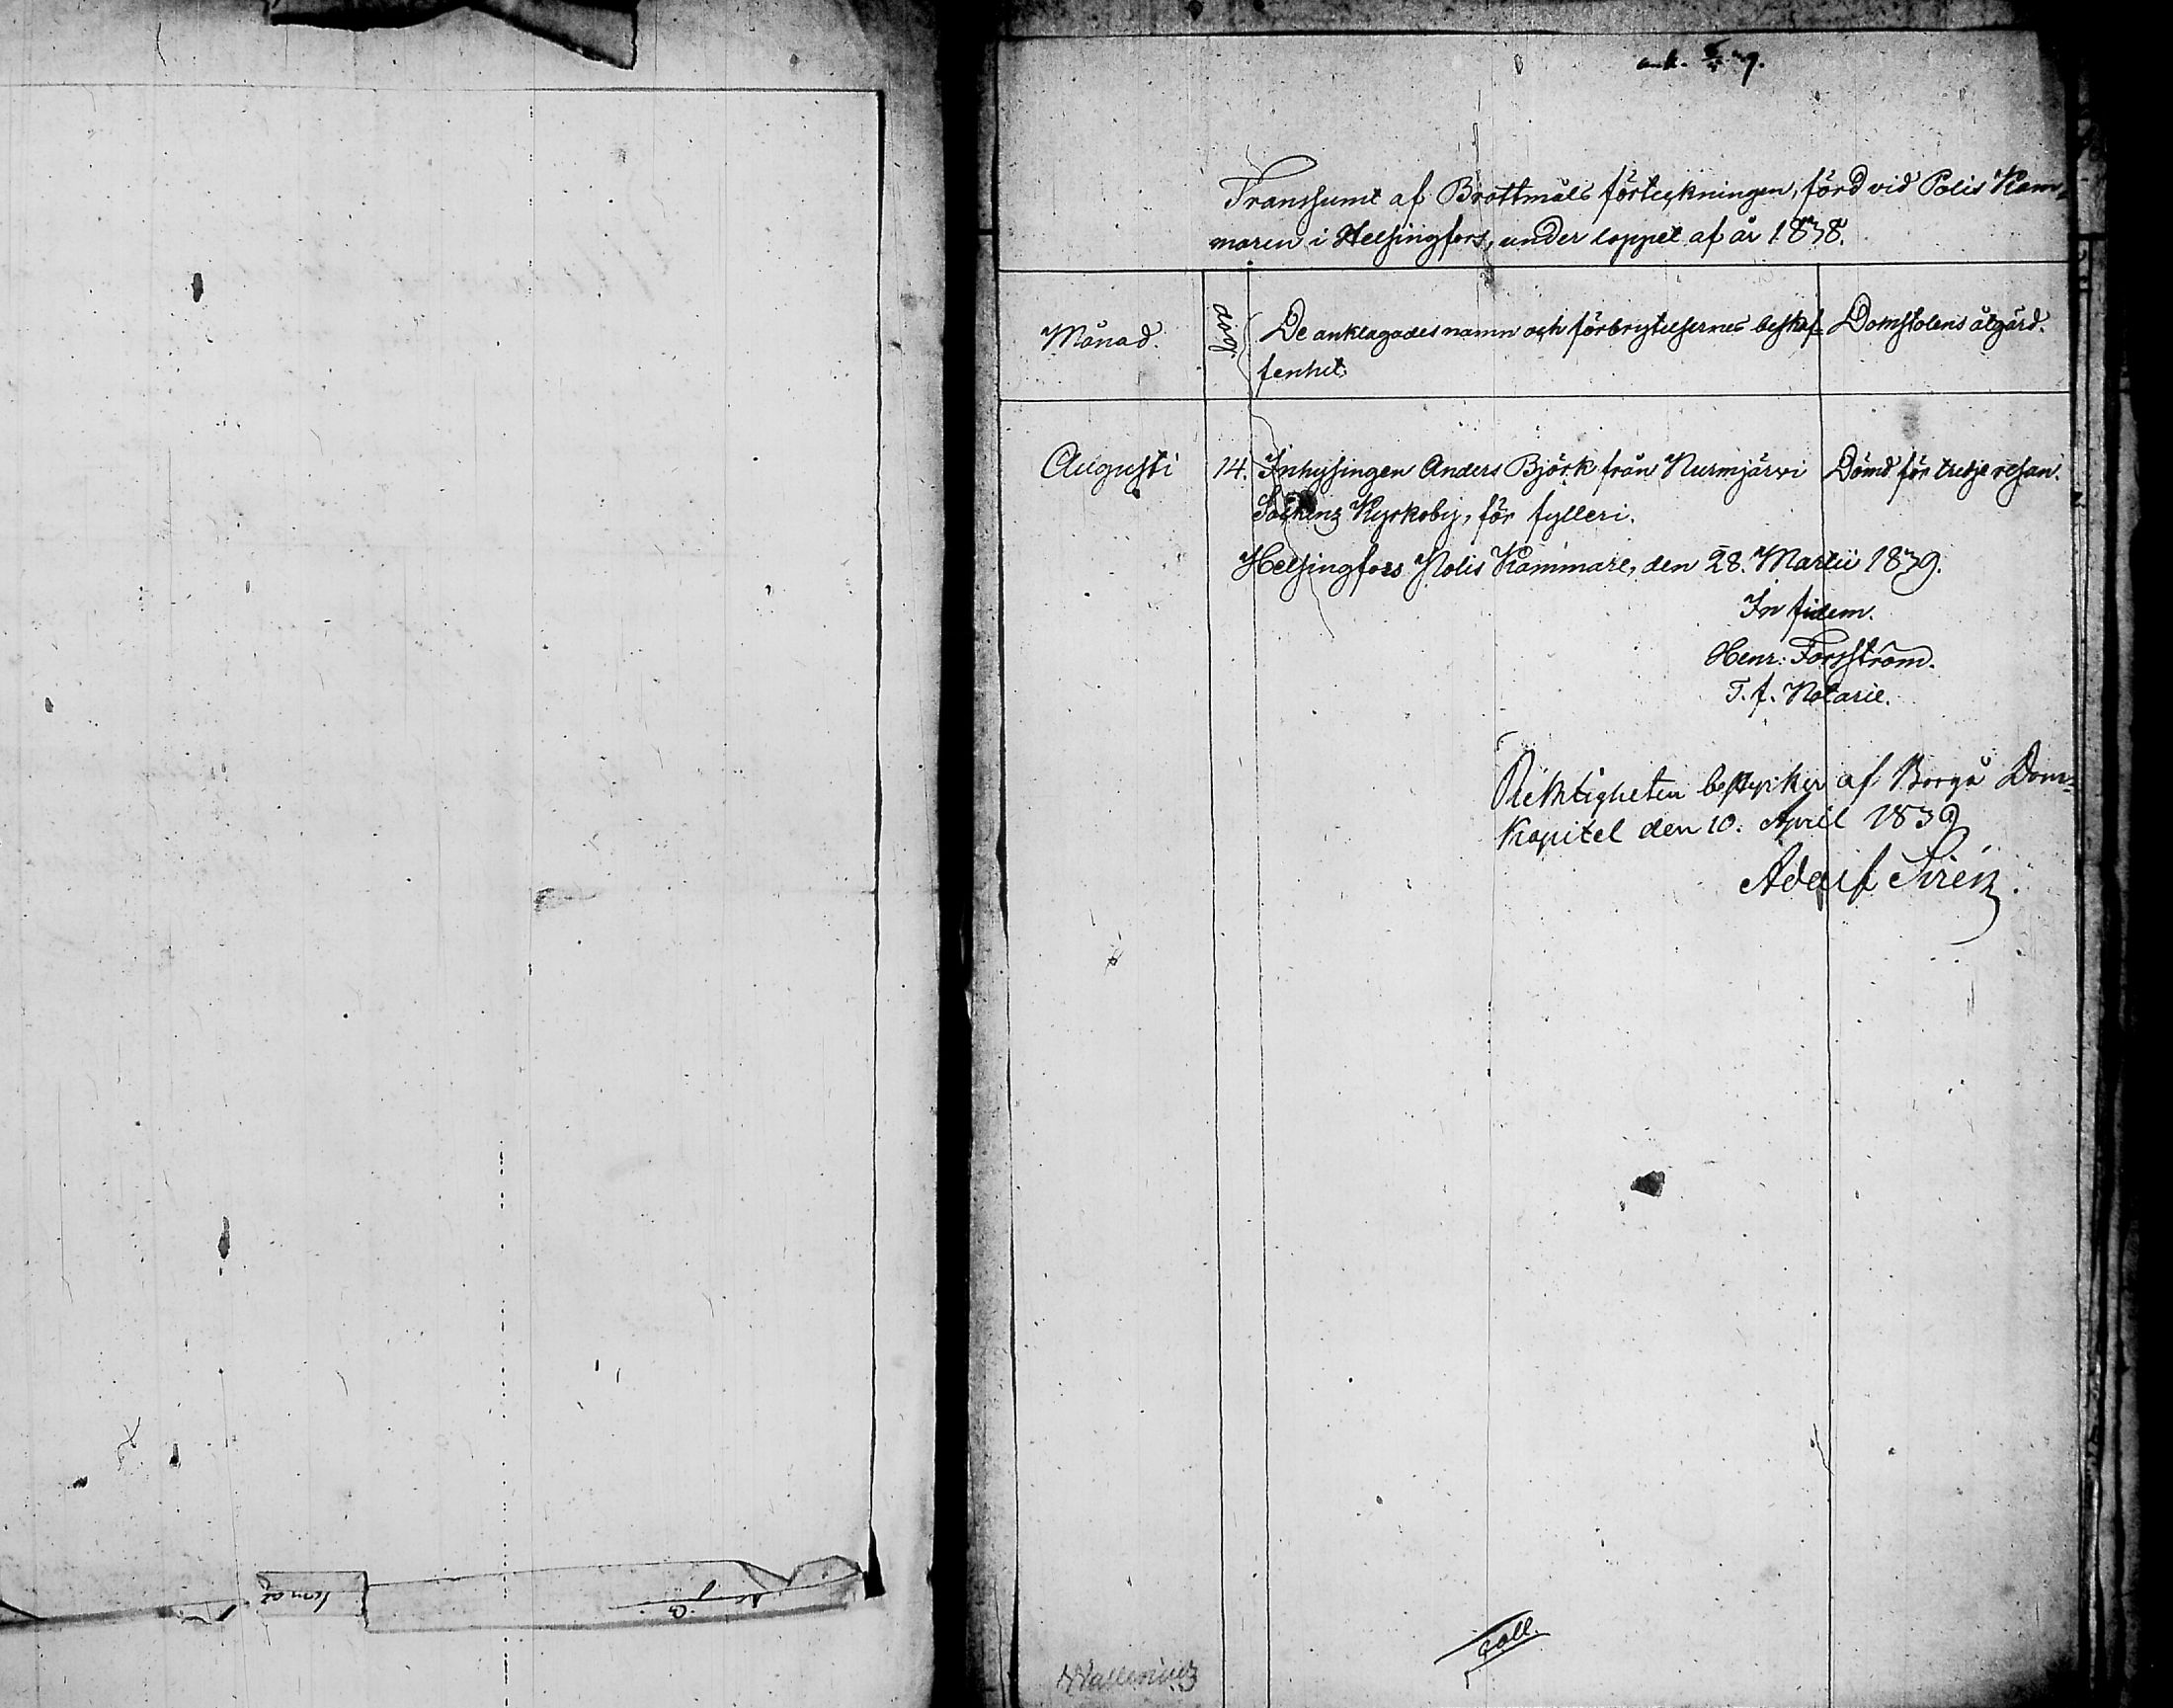 Transsumt af Brottmåls förteckningen, förd vid Polis Kam-
maren i Helsingfors, under loppet af år 1838.
Månad.
dag
De anklagades namn och förbrytelsernes beskaf-
fenhet.
Domstolens åtgärd.
Augusti
14.
Inhysingen Anders Björk från Nurmjärvi
Sockens Kyrkoby, för fylleri.
Dömd för tredje resan.
Helsingfors Polis Kammare, den 28. Martii 1839.
In fidem.
Henr: Forsström.
T. f. Notarie.
Riktigheten bestyrker af Borgå Dom-
kapitel den 10. April 1839
Adolf Sirén.
coll.